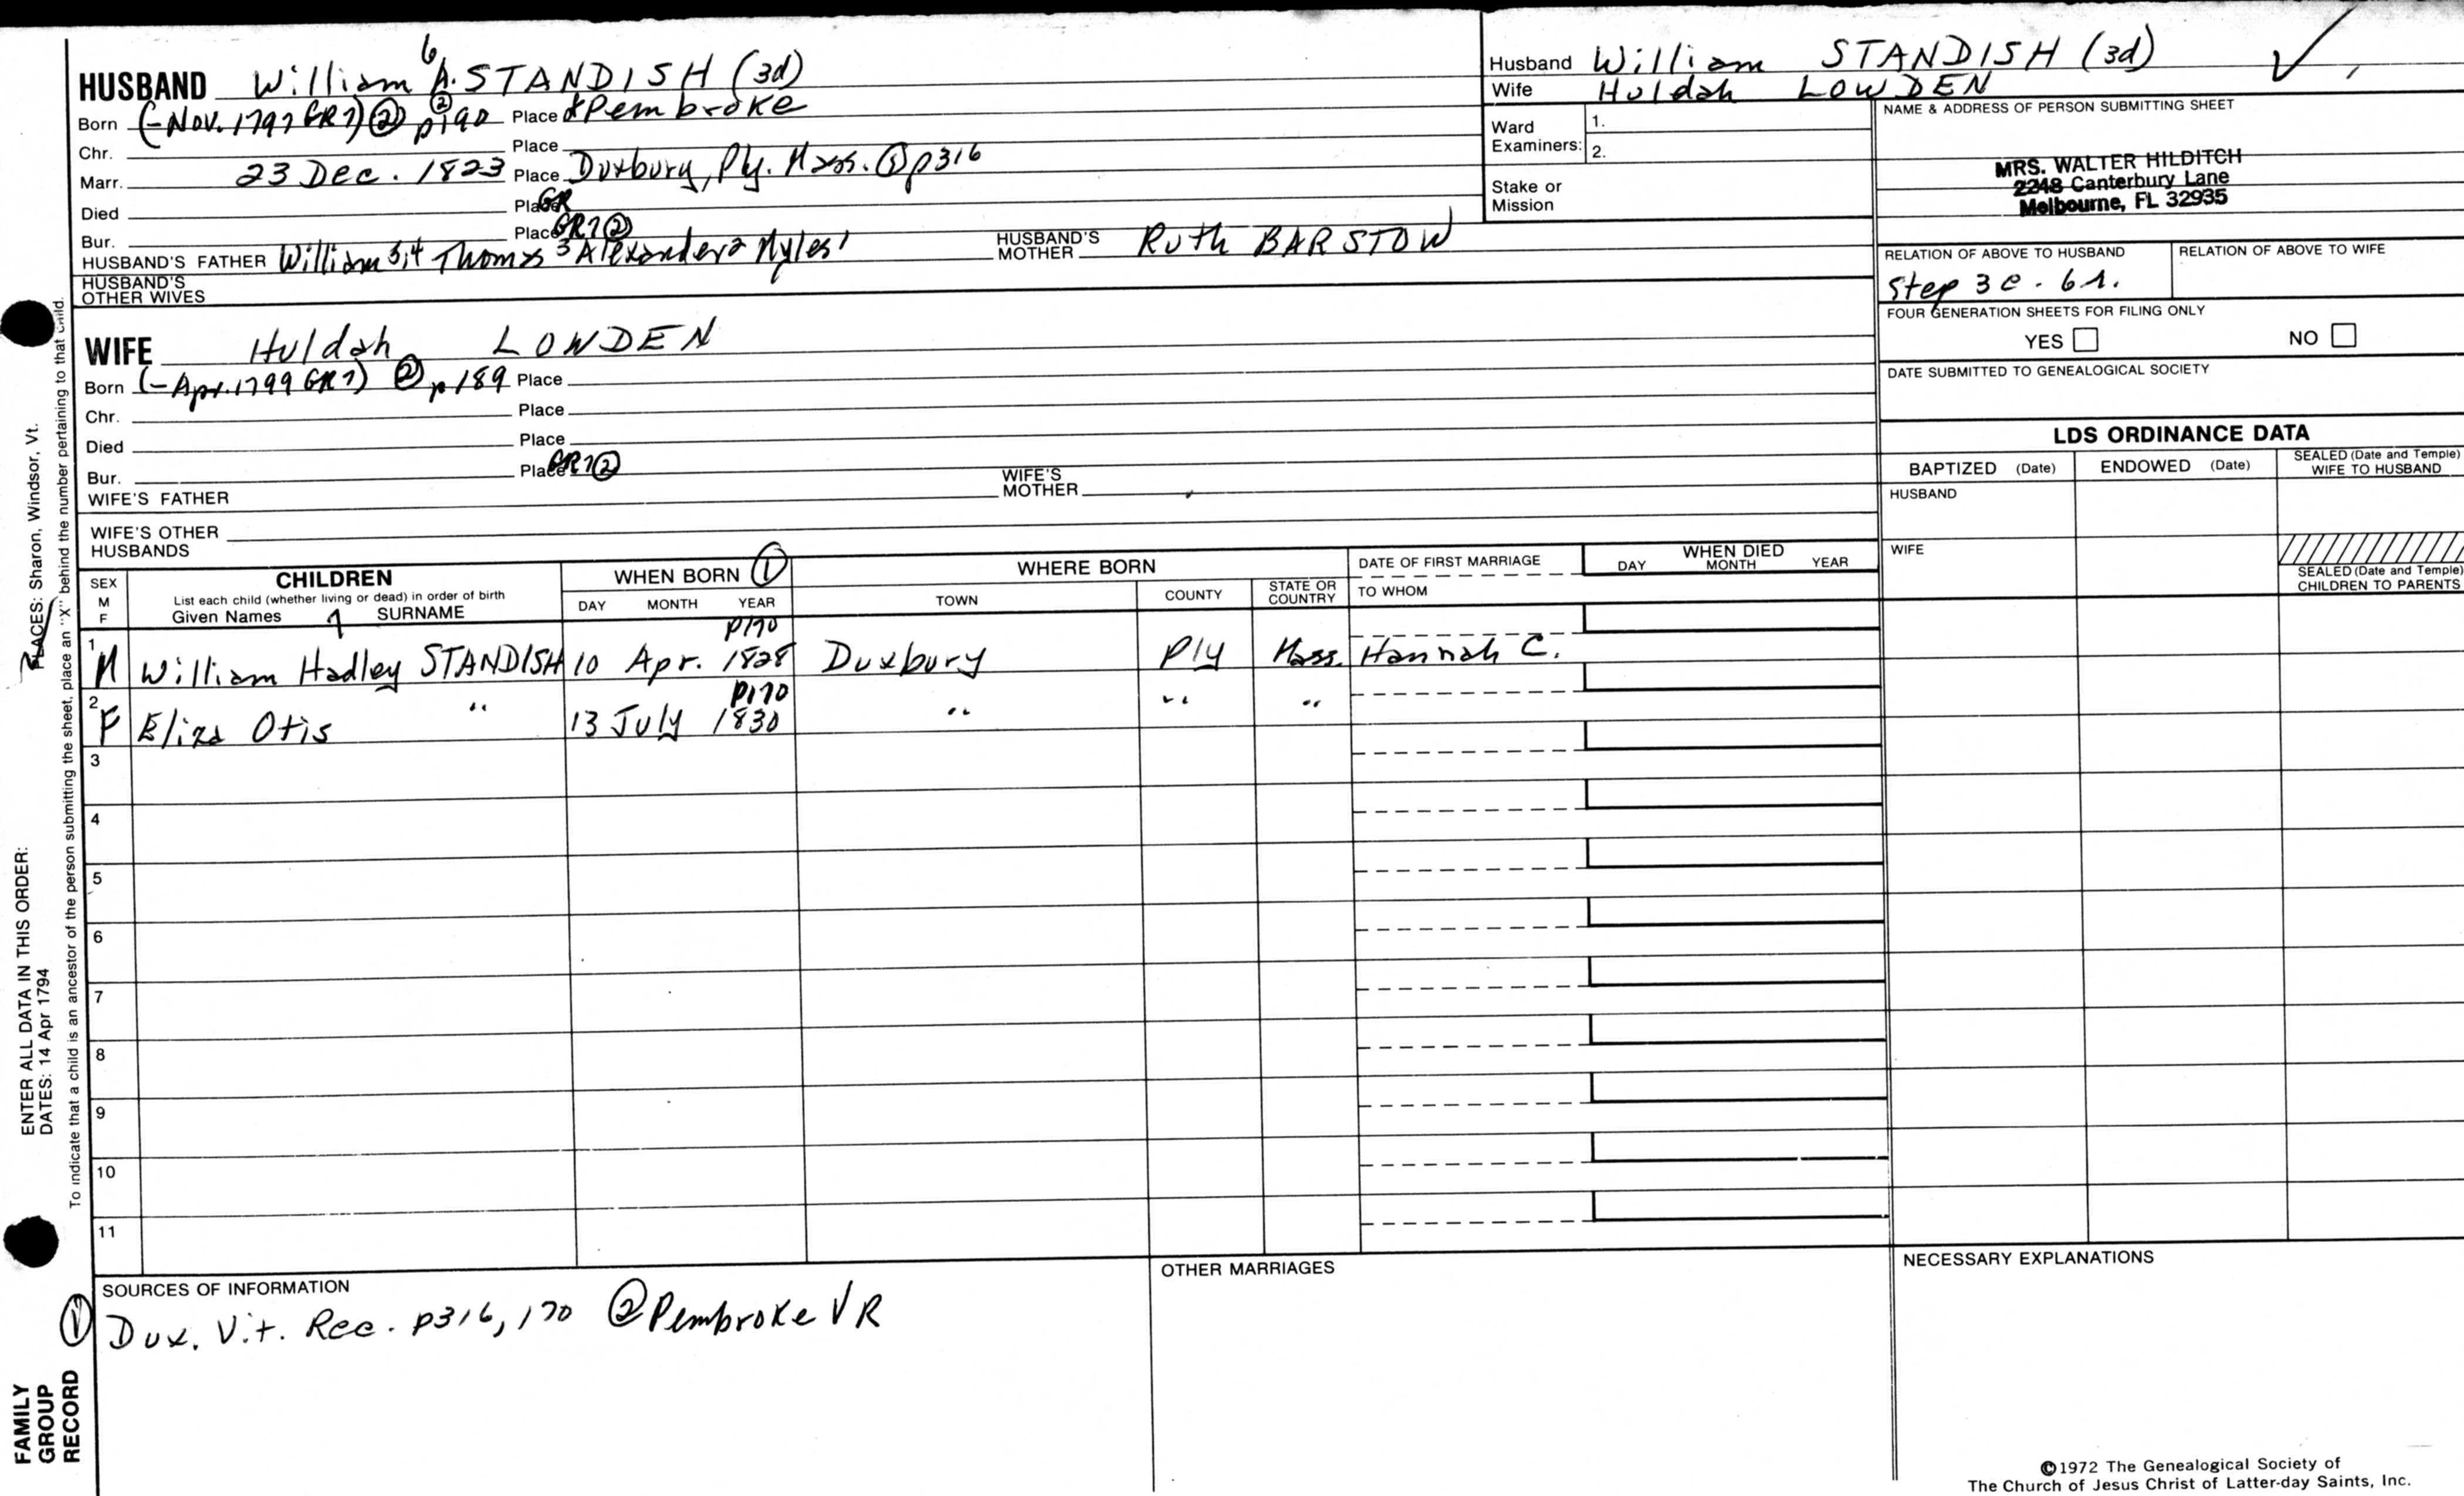 HUSBAND William 6 A. STANDISH (3d)
Born (-Nov. 1797 GR7) ② p190 Place Pembroke
Chr. Place
Marr. 23 Dec. 1823 Place Duxbury, Ply. Mass. ① p316
Died Place GR
Bur. Place GR7 ②
HUSBAND'S FATHER William 5,4 Thomas 3 Alexander 2 Myles 1 HUSBAND'S MOTHER Ruth BARSTOW
HUSBAND'S OTHER WIVES
WIFE Huldah LOWDEN
Born (-Apr. 1799 GR7) ② p189 Place
Chr. Place
Died Place
Bur. Place GR7 ②
WIFE'S FATHER WIFE'S MOTHER
WIFE'S OTHER HUSBANDS
Husband William STANDISH (3d) ✓
Wife Huldah LOWDEN
Ward Examiners: 1.
2.
Stake or Mission
NAME & ADDRESS OF PERSON SUBMITTING SHEET
MRS. WALTER HILDITCH
2248 Canterbury Lane
Melbourne, FL 32935
RELATION OF ABOVE TO HUSBAND RELATION OF ABOVE TO WIFE
Step 3c. 6r.
FOUR GENERATION SHEETS FOR FILING ONLY
YES NO
DATE SUBMITTED TO GENEALOGICAL SOCIETY
LDS ORDINANCE DATA
BAPTIZED (Date) ENDOWED (Date) SEALED (Date and Temple) WIFE TO HUSBAND
HUSBAND
WIFE
SEALED (Date and Temple) CHILDREN TO PARENTS
SEX M F
CHILDREN
List each child (whether living or dead) in order of birth
Given Names 7 SURNAME
WHEN BORN ①
DAY MONTH YEAR
WHERE BORN
TOWN COUNTY STATE OR COUNTRY
DATE OF FIRST MARRIAGE
TO WHOM
WHEN DIED
DAY MONTH YEAR
p170
1 M William Hadley STANDISH 10 Apr. 1828 Duxbury Ply Mass. Hannah C.
p170
2 F Eliza Otis " 13 July 1830 " " "
3
4
5
6
7
8
9
10
11
SOURCES OF INFORMATION
① Dux. Vit. Rec. p316, 170 ② Pembroke VR
OTHER MARRIAGES
NECESSARY EXPLANATIONS
©1972 The Genealogical Society of
The Church of Jesus Christ of Latter-day Saints, Inc.
ENTER ALL DATA IN THIS ORDER:
DATES: 14 Apr 1794
PLACES: Sharon, Windsor, Vt.
To indicate that a child is an ancestor of the person submitting the sheet, place an "X" behind the number pertaining to that child.
FAMILY
GROUP
RECORD